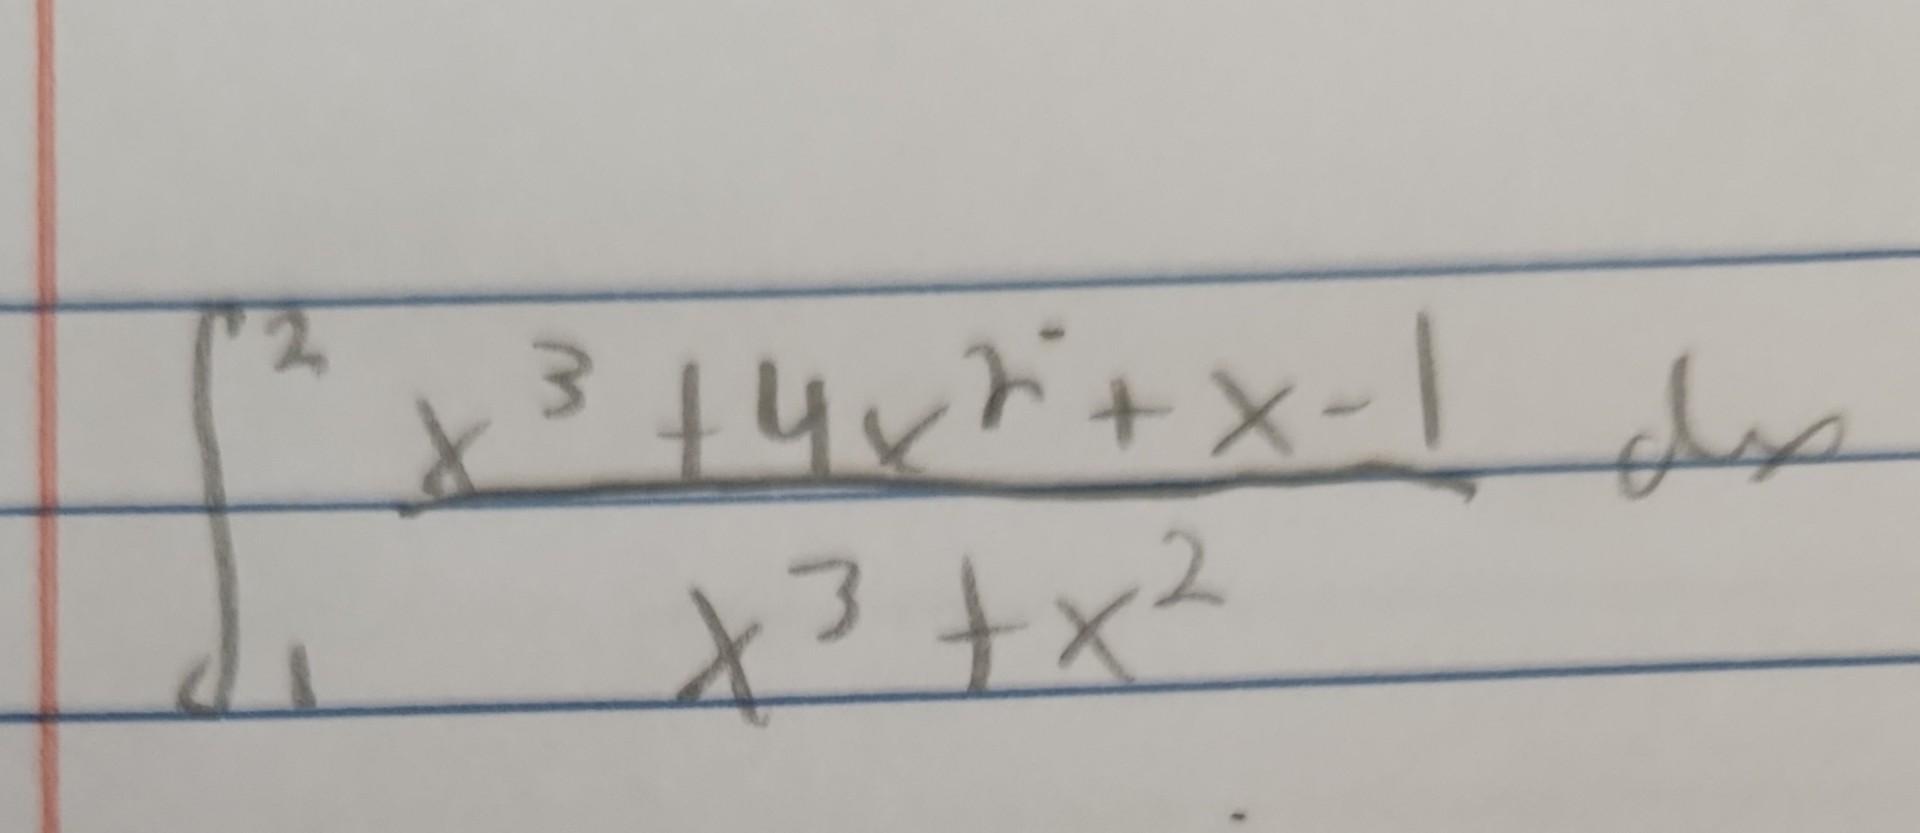 ∫₁² (x³ + 4x² + x - 1)/(x³ + x²) dx